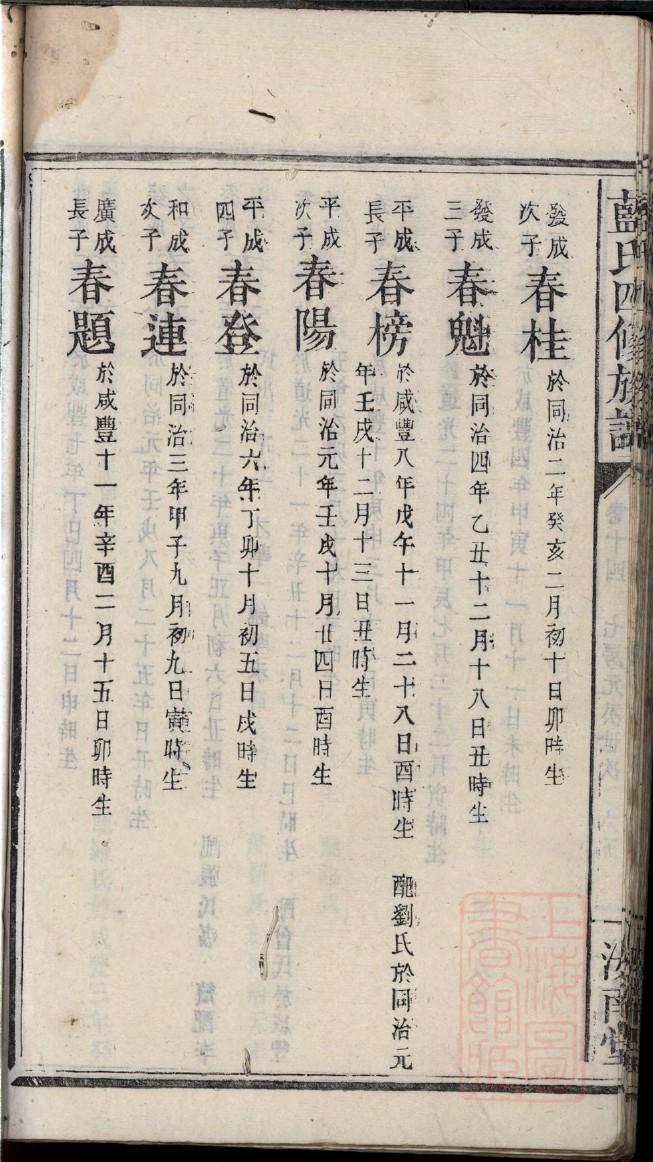 藍氏四修族譜
汝南堂
發成次子 春桂 於同治二年癸亥二月初十日卯時生
發成三子 春魁 於同治四年乙丑十二月十八日丑時生
平成長子 春榜 於咸豐八年戊午十一月二十八日酉時生 配劉氏於同治元
年壬戌十二月十三日丑時生
平成次子 春陽 於同治元年壬戌十月廿四日酉時生
平成四子 春登 於同治六年丁卯十月初五日戌時生
和成次子 春連 於同治三年甲子九月初九日寅時生
廣成長子 春題 於咸豐十一年辛酉二月十五日卯時生
上海圖書館藏